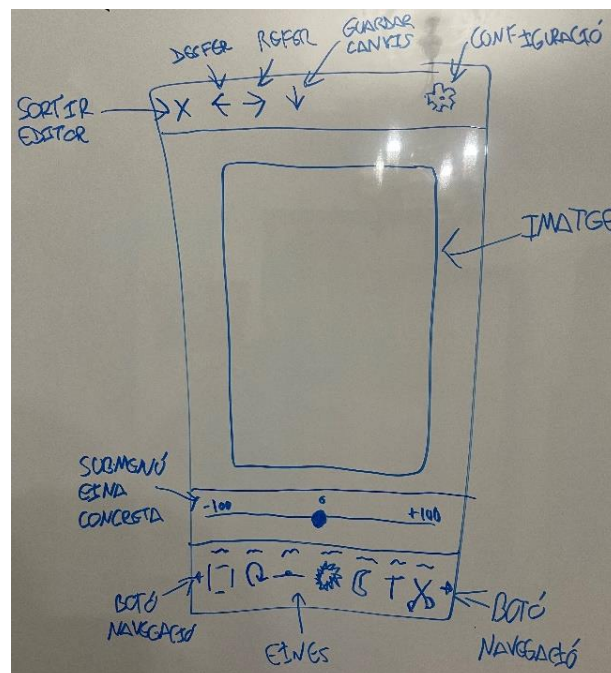 DESFER
REFER
GUARDAR
CANVIS
CONFIGURACIÓ
SORTIR
EDITOR
X
IMATGE
SUBMENÚ
EINA
CONCRETA
-100
0
+100
T
BOTÓ
NAVEGACIÓ
EINES
BOTÓ
NAVEGACIÓ